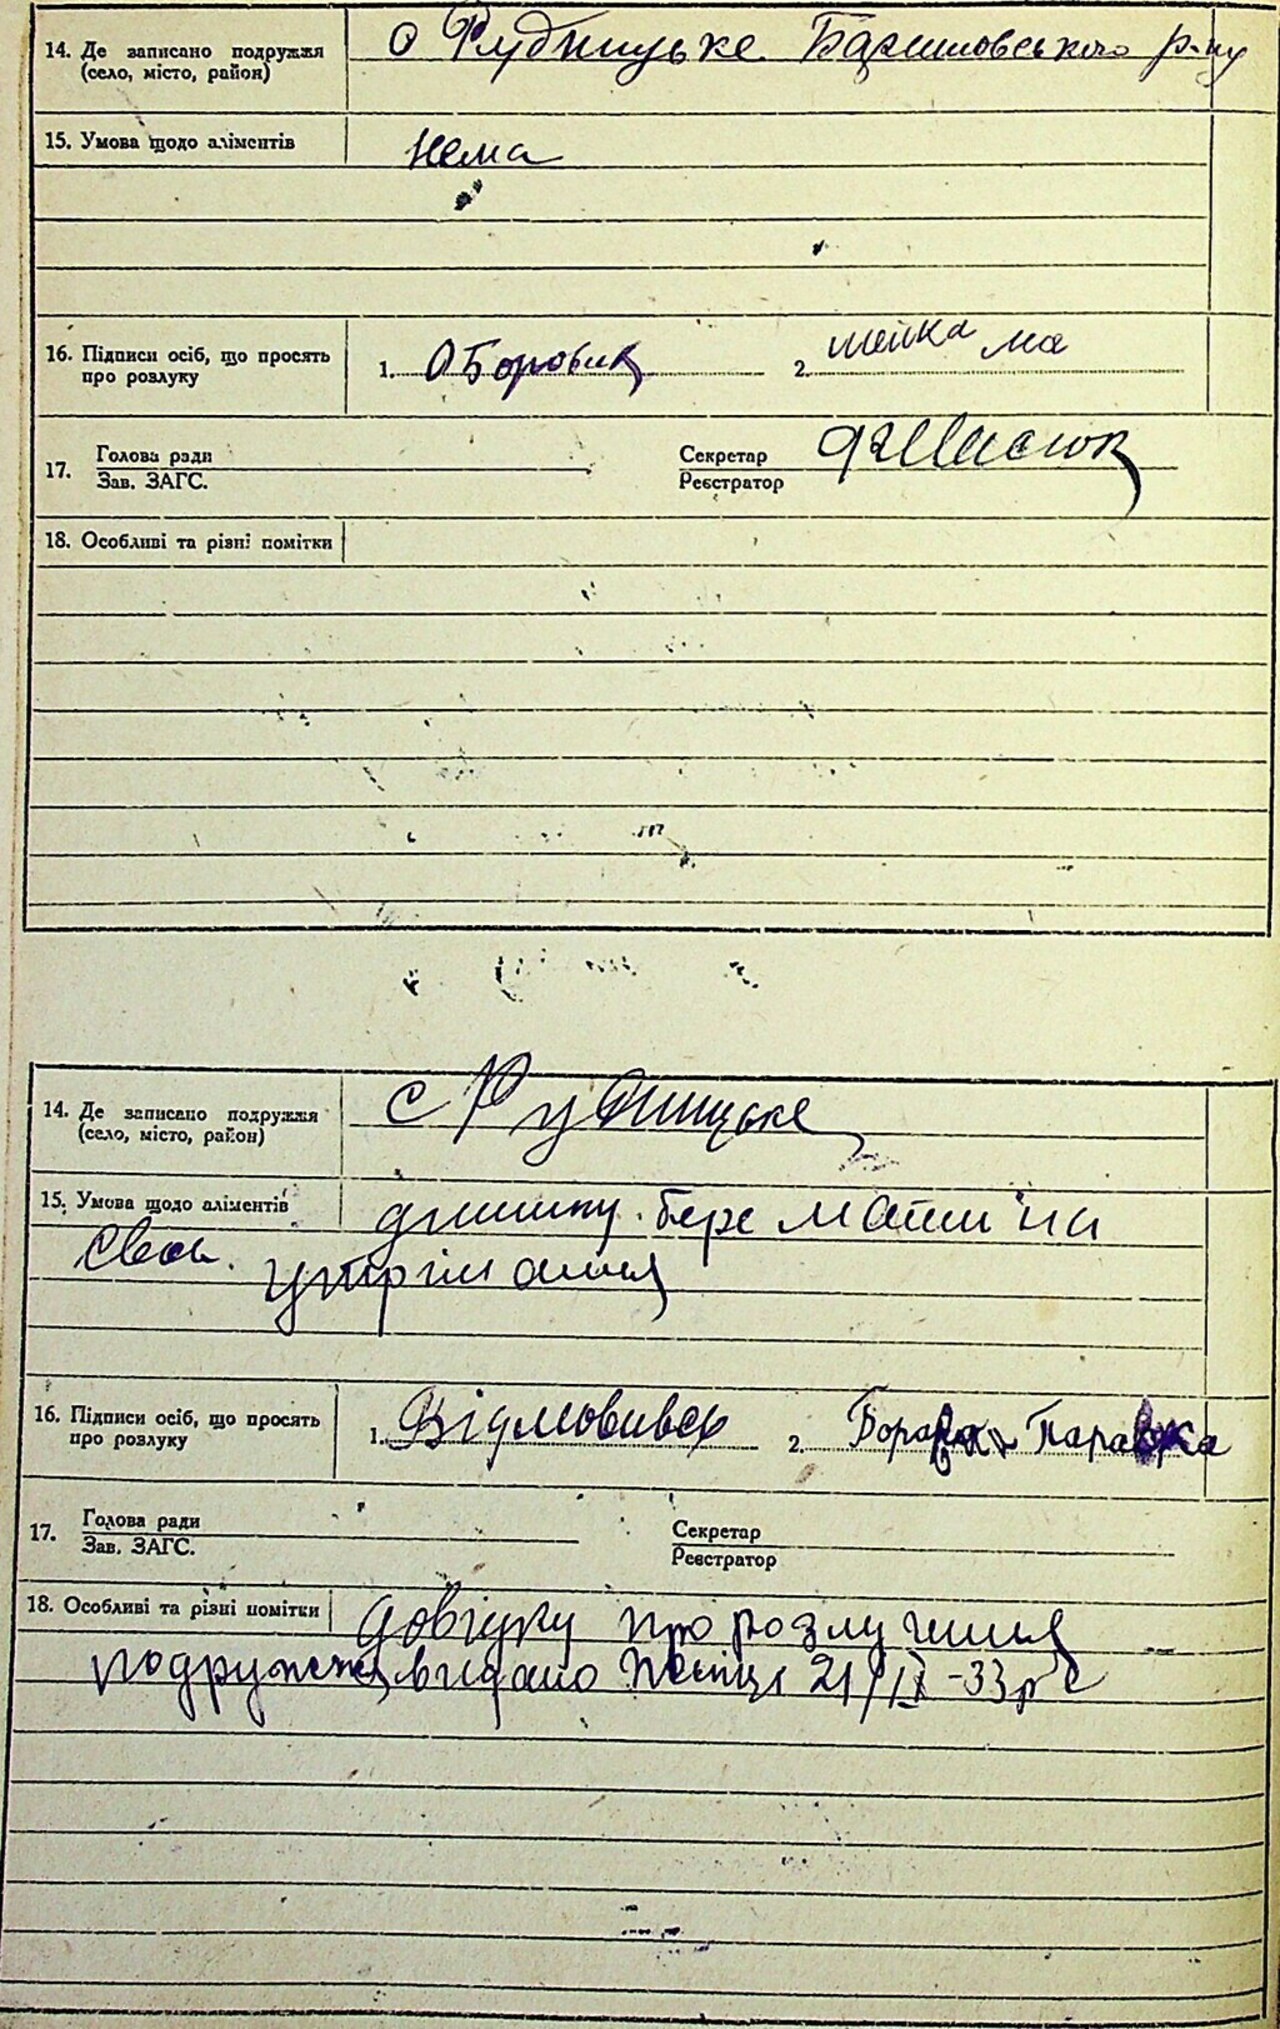 14. Де записано подружжя
(село, місто, район)
с Рудницьке Баришовського р-ну
15. Умова щодо аліментів
нема
16. Підписи осіб, що просять
про розлуку
1. О Боровик
2.
17. Голова ради
Зав. ЗАГС.
Секретар
Реєстратор
18. Особливі та різні помітки
14. Де записано подружжя
(село, місто, район)
с Рудницьке
15. Умова щодо аліментів
дитину бере мати на
своє утрімання
16. Підписи осіб, що просять
про розлуку
1. Відмовився
2.
17. Голова ради
Зав. ЗАГС.
Секретар
Реєстратор
18. Особливі та різні помітки
Довідку про розлучення
подружжя видано 21/IX-33р